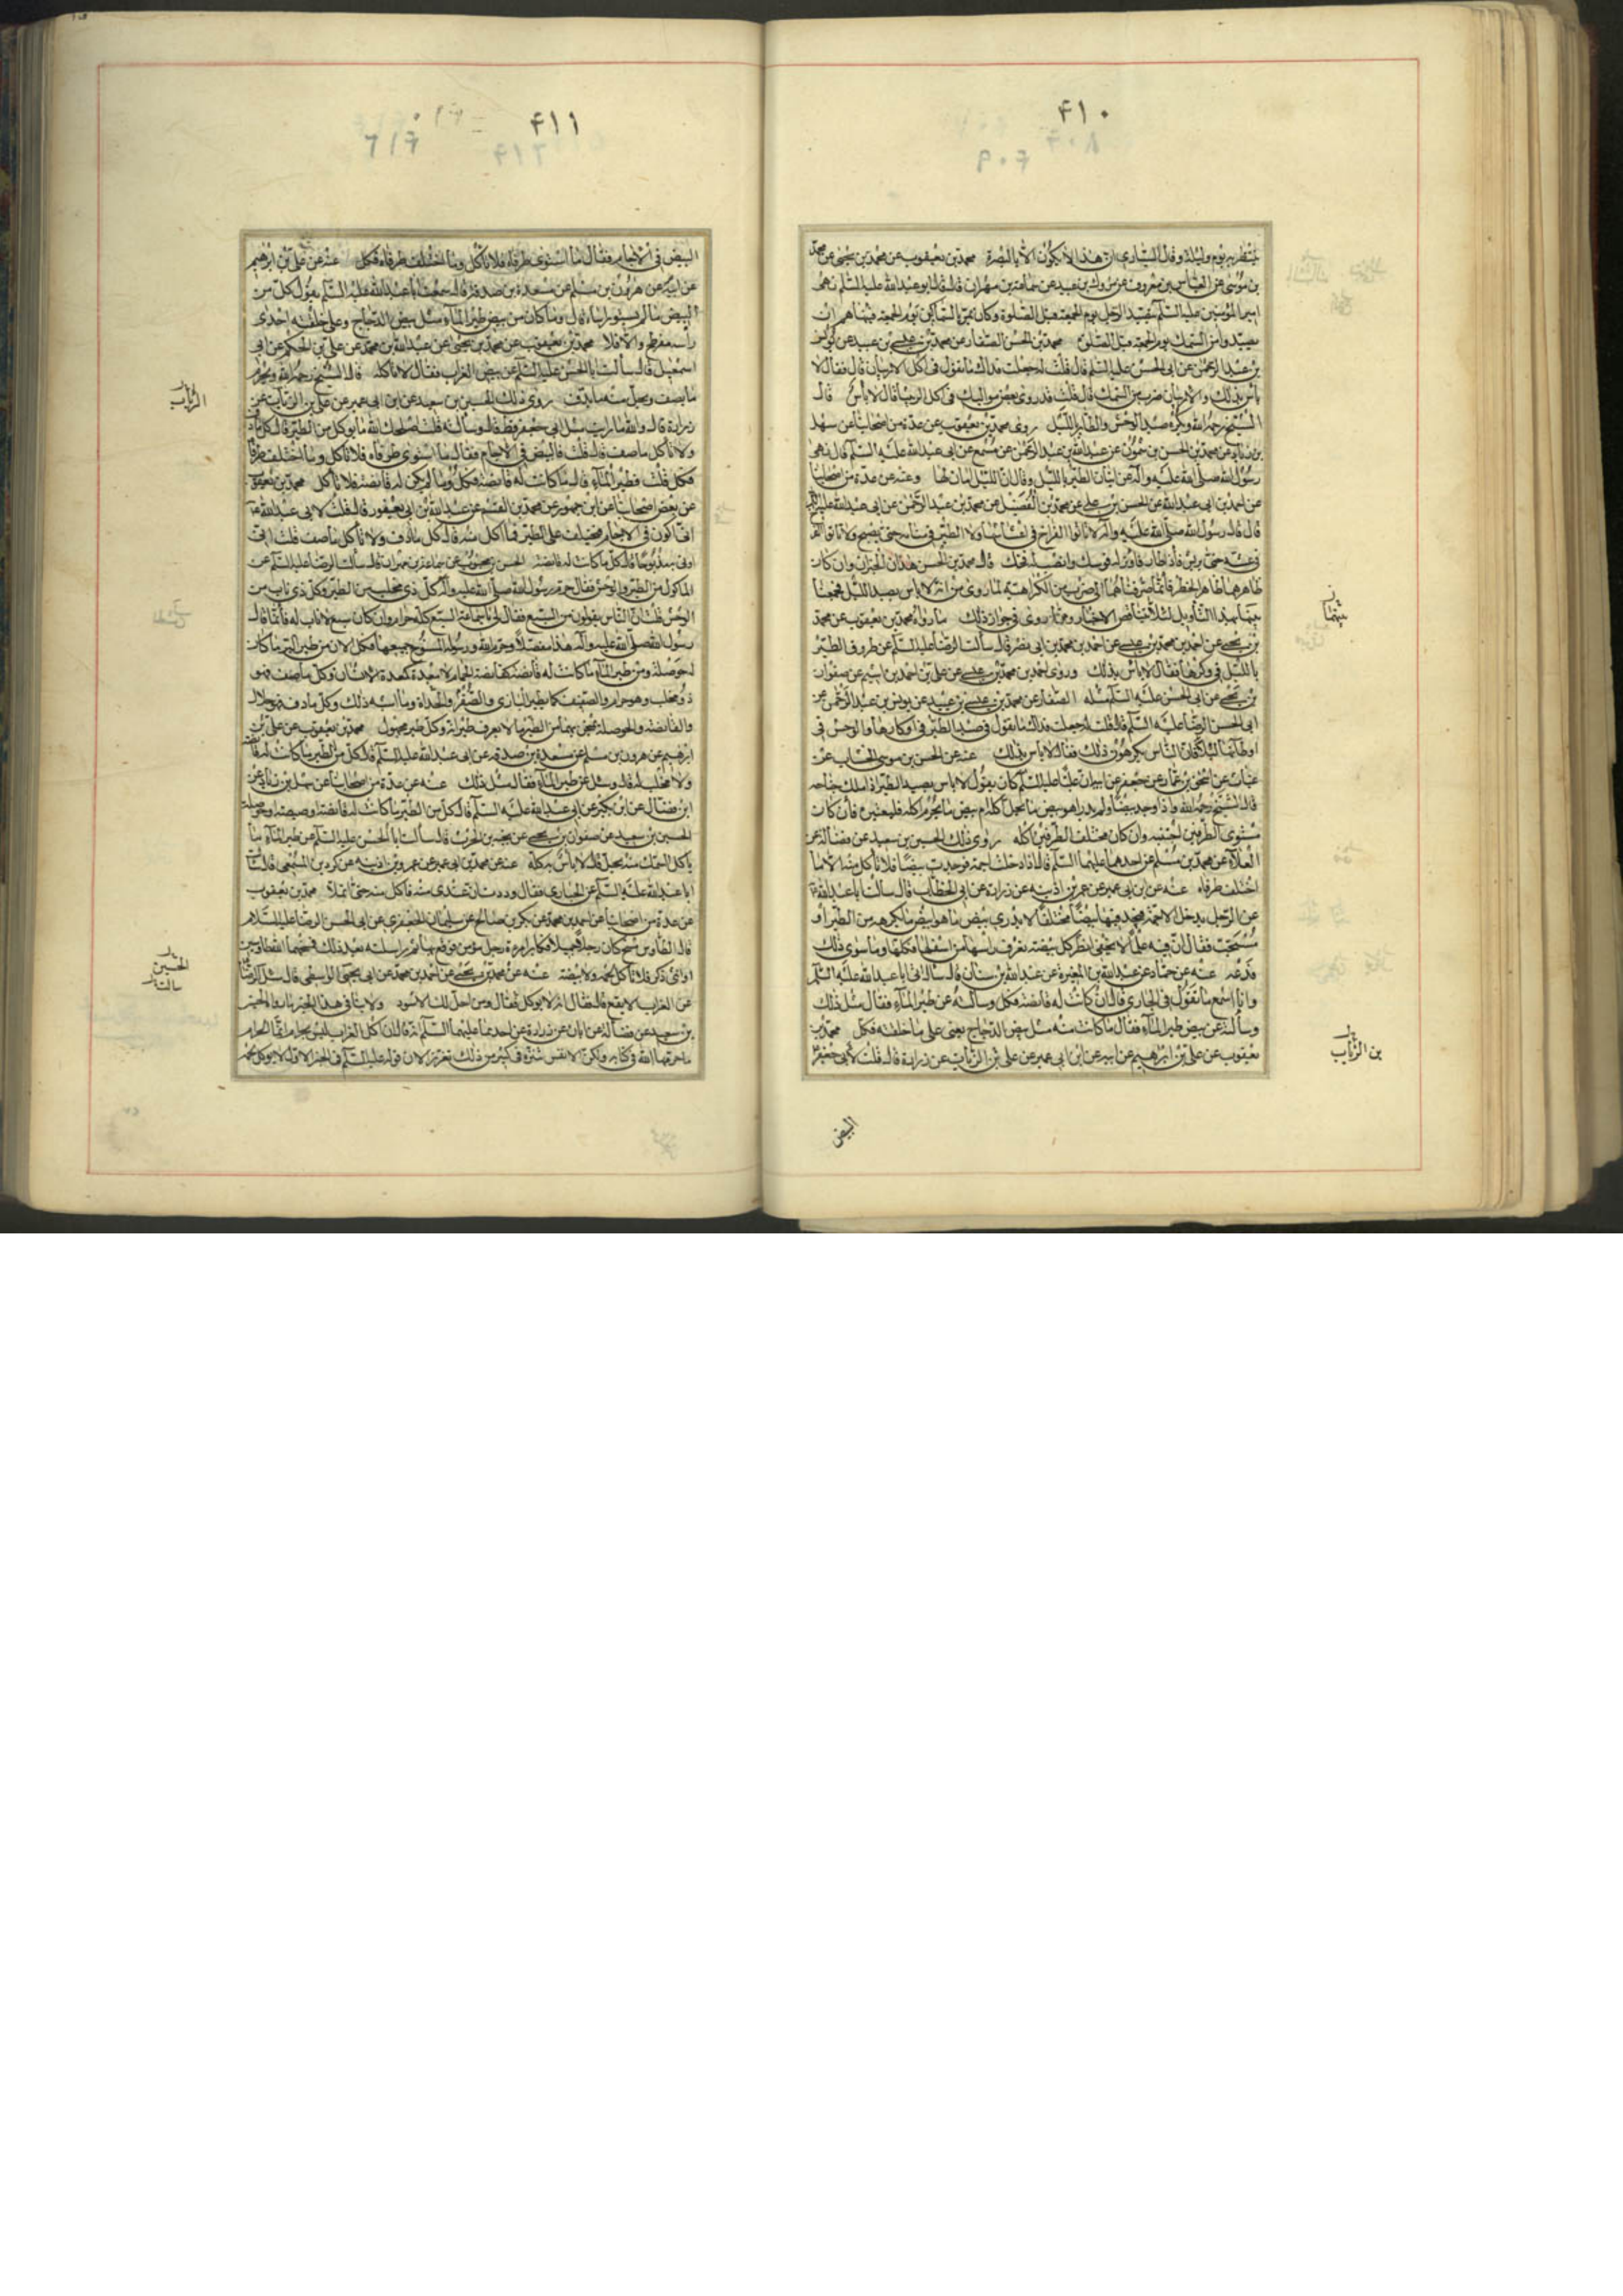 ۴۱۰
ينتظر به يوم وليلة وقال السياري ان هذا لا يكون الا بالبصرة محمد بن يعقوب عن محمد بن يحيى عن محمد
بن موسى عن العباس بن معروف عن مروك بن عبيد عن سماعة بن مهران قال قال ابو عبدالله عليه السلم نهى
امير المؤمنين عليه السلم يتصيد الرجل يوم الجمعة قبل الصلوة وكان يمر بالسماكين يوم الجمعة فينهاهم ان
يصيدوا من السمك يوم الجمعة قبل الصلوة محمد بن الحسن الصفار عن محمد بن عيسى بن عبيد عن يونس
بن عبد الرحمن عن ابى الحسن عليه السلم قال قلت له جعلت فداك ما تقول فى اكل الاربيان قال فقال لا
بأس بذلك والاربيان ضرب من السمك قال قلت قد روى بعض مواليك فى اكل الربيثا قال لا بأس قال
الشيخ رحمه الله ويكره صيد الوحش والطير بالليل روى محمد بن يعقوب عن عدة من اصحابنا عن سهل
بن زياد عن محمد بن الحسن بن شمون عن عبد الله بن عبد الرحمن عن مسمع عن ابى عبد الله عليه السلم قال نهى
رسول الله صلى الله عليه وآله عن اتيان الطير بالليل وقال ان الليل امان لها وعنه عن عدة من اصحابنا
عن احمد بن ابى عبدالله عن الحسن بن على عن محمد بن الفضيل عن محمد بن عبد الرحمن عن ابى عبد الله عليه السلم
قال قال رسول الله صلى الله عليه وآله لا تأتوا الفراخ فى اعشاشها ولا الطير فى منامه حتى يصبح ولا تأتوا الفرخ
فى عشه حتى يريش فاذا طار فاوتر له قوسك وانصب له فخك قال محمد بن الحسن هذان الخبران وان كان
ظاهرهما ظاهر الحظر فانما صرفناهما الى ضرب من الكراهية لما روى من انه لا بأس بصيد الليل فجمعنا
بينهما بهذا التأويل لئلا تتناقض الاخبار ومما روى فى جواز ذلك ما رواه محمد بن يعقوب عن محمد
بن يحيى عن احمد بن محمد بن عيسى عن احمد بن محمد بن ابى نصر قال سألت الرضا عليه السلم عن طروق الطير
بالليل فى وكرها فقال لا بأس بذلك وروى احمد بن محمد بن عيسى عن على بن احمد بن اشيم عن صفوان
بن يحيى عن ابى الحسن عليه السلم مثله الصفار عن محمد بن عيسى بن عبيد عن يونس بن عبد الرحمن عن
ابى الحسن الرضا عليه السلم قال قلت له جعلت فداك ما تقول فى صيد الطير فى اوكارها والوحش فى
اوطانها ليلا فان الناس يكرهون ذلك فقال لا بأس بذلك عنه عن الحسن بن موسى الخشاب عن
غياث عن اسحق بن عمار عن جعفر عن ابيه ان عليا عليه السلم كان يقول لا بأس بصيد الطير اذا ملك جناحه
قال الشيخ رحمه الله واذا وجد بيضا ولم يدر اهو بيض ما يحل اكله ام بيض ما يحرم اكله فليعتبره فان كان
مستوى الطرفين اجتنبه وان كان مختلف الطرفين اكله روى ذلك الحسين بن سعيد عن فضالة عن
العلاء عن محمد بن مسلم عن احدهما عليهما السلم قال اذا دخلت اجمة فوجدت بيضا فلا تأكل منه الا ما
اختلف طرفاه عنه عن ابن ابى عمير عن عمر بن اذينه عن زرارة عن ابى الخطاب قال سألت ابا عبد الله ع
عن الرجل يدخل الاجمة فيجد فيها بيضا مختلفا لا يدرى بيض ما هو ابيض ما يكره من الطير او
يستحب فقال ان فيه علما لا يخفى انظر كل بيضة تعرف رأسها من اسفلها فكلها وما سوى ذلك
فدعه عنه عن حماد عن عبدالله بن المغيرة عن عبد الله بن سنان قال سأل ابى ابا عبد الله عليه السلم
وانا اسمع ما تقول فى الحبارى قال ان كانت له قانصة فكل وسألته عن طير الماء فقال مثل ذلك
وسألته عن بيض طير الماء فقال ما كان منه مثل بيض الدجاج يعنى على ما خلقته فكل محمد بن
يعقوب عن على بن ابراهيم عن ابيه عن ابن ابى عمير عن على بن الزيات عن زرارة قال قلت لأبى جعفر ع
بينهما
بن الرئاب
البيض
۴۱۱
البيض فى الاجام فقال ما استوى طرفاه فلا تأكل وما اختلف طرفاه فكل عنه عن على بن ابراهيم
عن ابيه عن هرون بن مسلم عن مسعدة بن صدقة قال سمعت ابا عبد الله عليه السلم يقول كل من
البيض ما لم يستو رأساه قال وما كان من بيض طير الماء مثل بيض الدجاج وعلى خلقته احدى
رأسيه مفرطح والا فلا محمد بن يعقوب عن محمد بن يحيى عن عبدالله بن محمد عن على بن الحكم عن ابى
اسمعيل قال سألت ابا الحسن عليه السلم عن بيض الغراب فقال لا تأكله قال الشيخ رحمه الله ويحرم
ما يصف ويحل منه ما يدف روى ذلك الحسين بن سعيد عن ابن ابى عمير عن على بن الزيات عن
زرارة قال والله ما رأيت مثل ابى جعفر قط قال وسألته قلت اصلحك الله ما يؤكل من الطير قال كل ما دف
ولا تأكل ما صف قال قلت فالبيض فى الاجام فقال ما استوى طرفاه فلا تأكل وما اختلف طرفاه
فكل قلت فطير الماء قال ما كانت له قانصة فكل وما لم يكن له قانصة فلا تأكل محمد بن يعقوب
عن بعض اصحابنا عن ابن جمهور عن محمد بن القسم عن عبد الله بن ابى يعفور قال قلت لابى عبد الله ع
انى اكون فى الاجام فيختلف على الطير فما آكل منه قال كل ما دف ولا تأكل ما صف قلت انى
اوتى به مذبوحا قال كل ما كانت له قانصة الحسن بن محبوب عن سماعة بن مهران قال سألت الرضا عليه السلم عن
الماكول من الطير والوحش فقال حرم رسول الله صلى الله عليه وآله كل ذى مخلب من الطير وكل ذى ناب من
الوحش قلت ان الناس يقولون من السبع فقال لى يا سماعة السبع كله حرام وان كان سبع لا ناب له فانما قال
رسول الله صلى الله عليه وآله هذا مفصلا وحرم الله ورسوله المسوخ جميعها فكل الان من طير البر ما كان
له حوصلة ومن طير الماء ما كانت له قانصة كقانصة الحمام لا معدة كمعدة الانسان وكل ما صف فهو
ذو مخلب وهو حرام والصفيف كما يطير البازى والصقر والحداة وما اشبه ذلك وكل ما دف فهو حلال
والقانصة والحوصلة يمتحن بهما من الطير ما لا يعرف طيرانه وكل طير مجهول محمد بن يعقوب عن على بن
ابرهيم عن هرون بن مسلم عن مسعدة بن صدقة عن ابى عبد الله عليه السلم قال كل من الطير ما كانت له قانصة
ولا مخلب له قال وسئل عن طير الماء فقال مثل ذلك عنه عن عدة من اصحابنا عن سهل بن زياد عن
ابن فضال عن ابن بكير عن ابى عبد الله عليه السلم قال كل من الطير ما كانت له قانصة او صيصة او حوصلة
الحسين بن سعيد عن صفوان بن يحيى عن نجية بن الحرث قال سألت ابا الحسن عليه السلم عن طير الماء ما
ياكل السمك منه يحل قال لا بأس به كله عنه عن محمد بن ابى عمير عن عمر بن اذينه عن كردين المسمعى قال سألت
ابا عبدالله عليه السلم عن الحبارى فقال وددت ان عندى منه فاكل منه حتى اتملأ محمد بن يعقوب
عن عدة من اصحابنا عن احمد بن محمد عن بكر بن صالح عن سليمان الجعفرى عن ابى الحسن الرضا عليه السلام
قال الطاوس مسخ كان رجلا جميلا فكابر امرءة رجل مؤمن فوقع بها ثم راسلته بعد ذلك فمسخهما الله طاوسين
انثى وذكر فلا تأكل لحمه ولا بيضه عنه عن محمد بن يحيى عن احمد بن محمد عن ابى يحيى الواسطى قال سئل الرضا
عن الغراب الابقع قال فقال انه لا يؤكل فقال ومن احل لك الاسود ولا ينافى هذا الخبر ما رواه الحسين
بن سعيد عن فضالة عن ابان عن زرارة عن احدهما عليهما السلم انه قال ان اكل الغراب ليس بحرام انما الحرام
ما حرم الله فى كتابه ولكن الانفس تتنزه عن كثير من ذلك تقززا لان قوله عليه السلم فى الخبر الاول لا يؤكل
الرئاب
الحسين